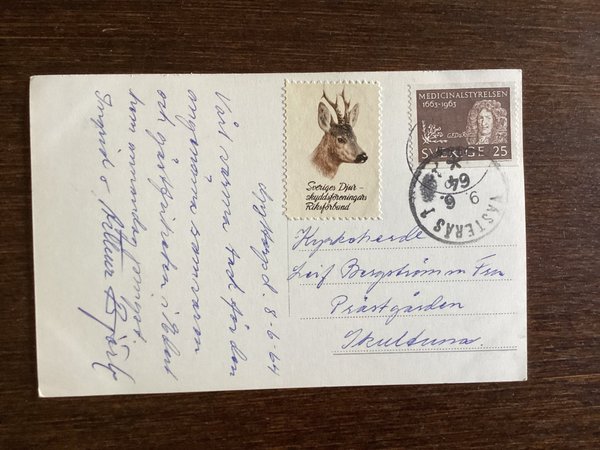 Sveriges Djur-
skyddsföreningars
Riksförbund
MEDICINALSTYRELSEN
1663-1963
SVERIGE 25
VÄSTERÅS 1
9. 6.
64
Kyrkoherde
Leif Bergström m Fru
Prästgården
Skultuna.
8-6-64
Vårt varma tack för den
angenäma samvaron
och gästfriheten i Edert
hem
Ingrid o
Björk